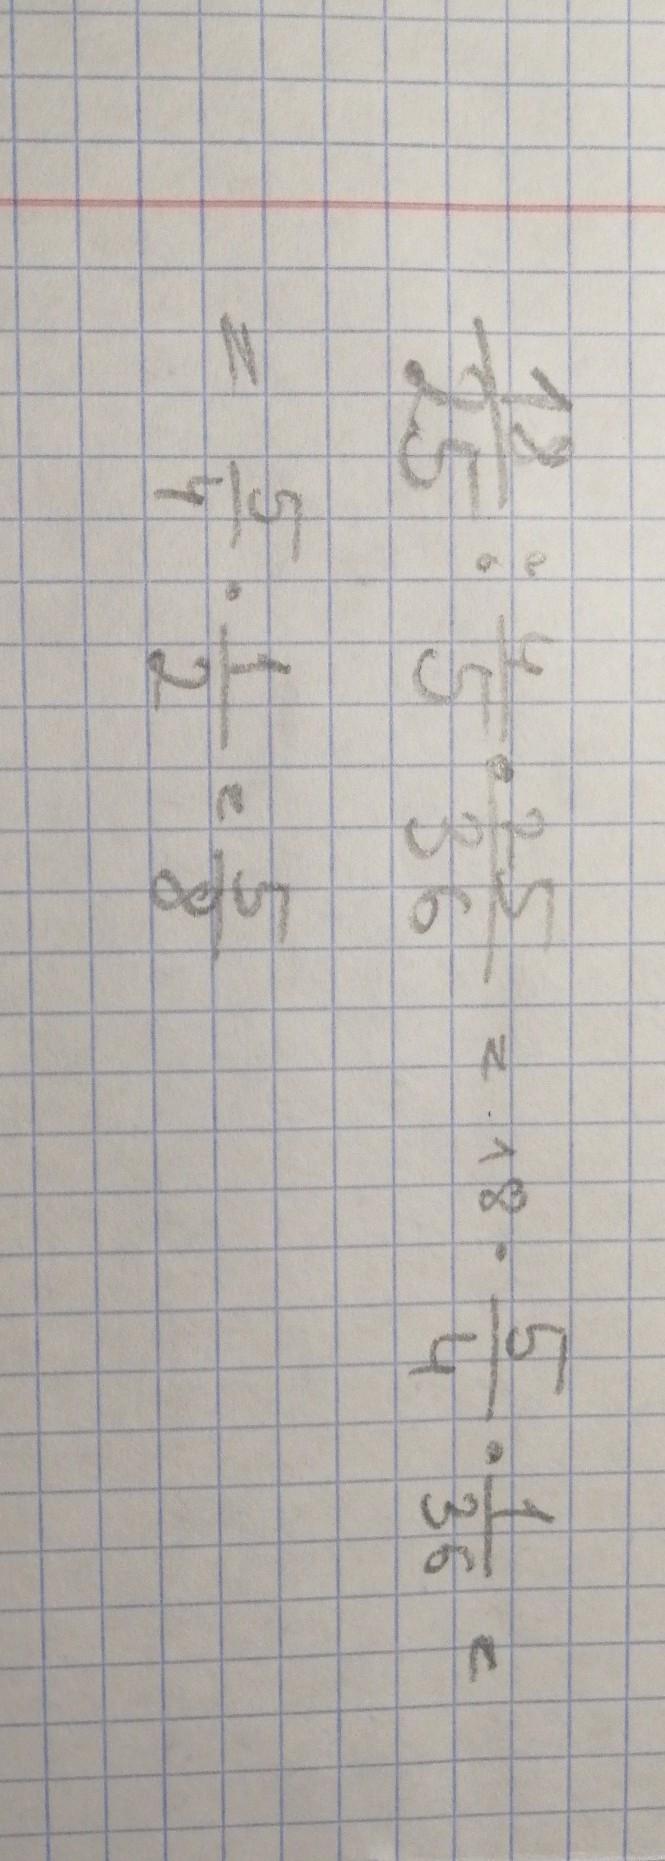 18/25 : 4/5 · 25/36 = 18 · 5/4 · 1/36 =
= 5/4 · 1/2 = 5/8